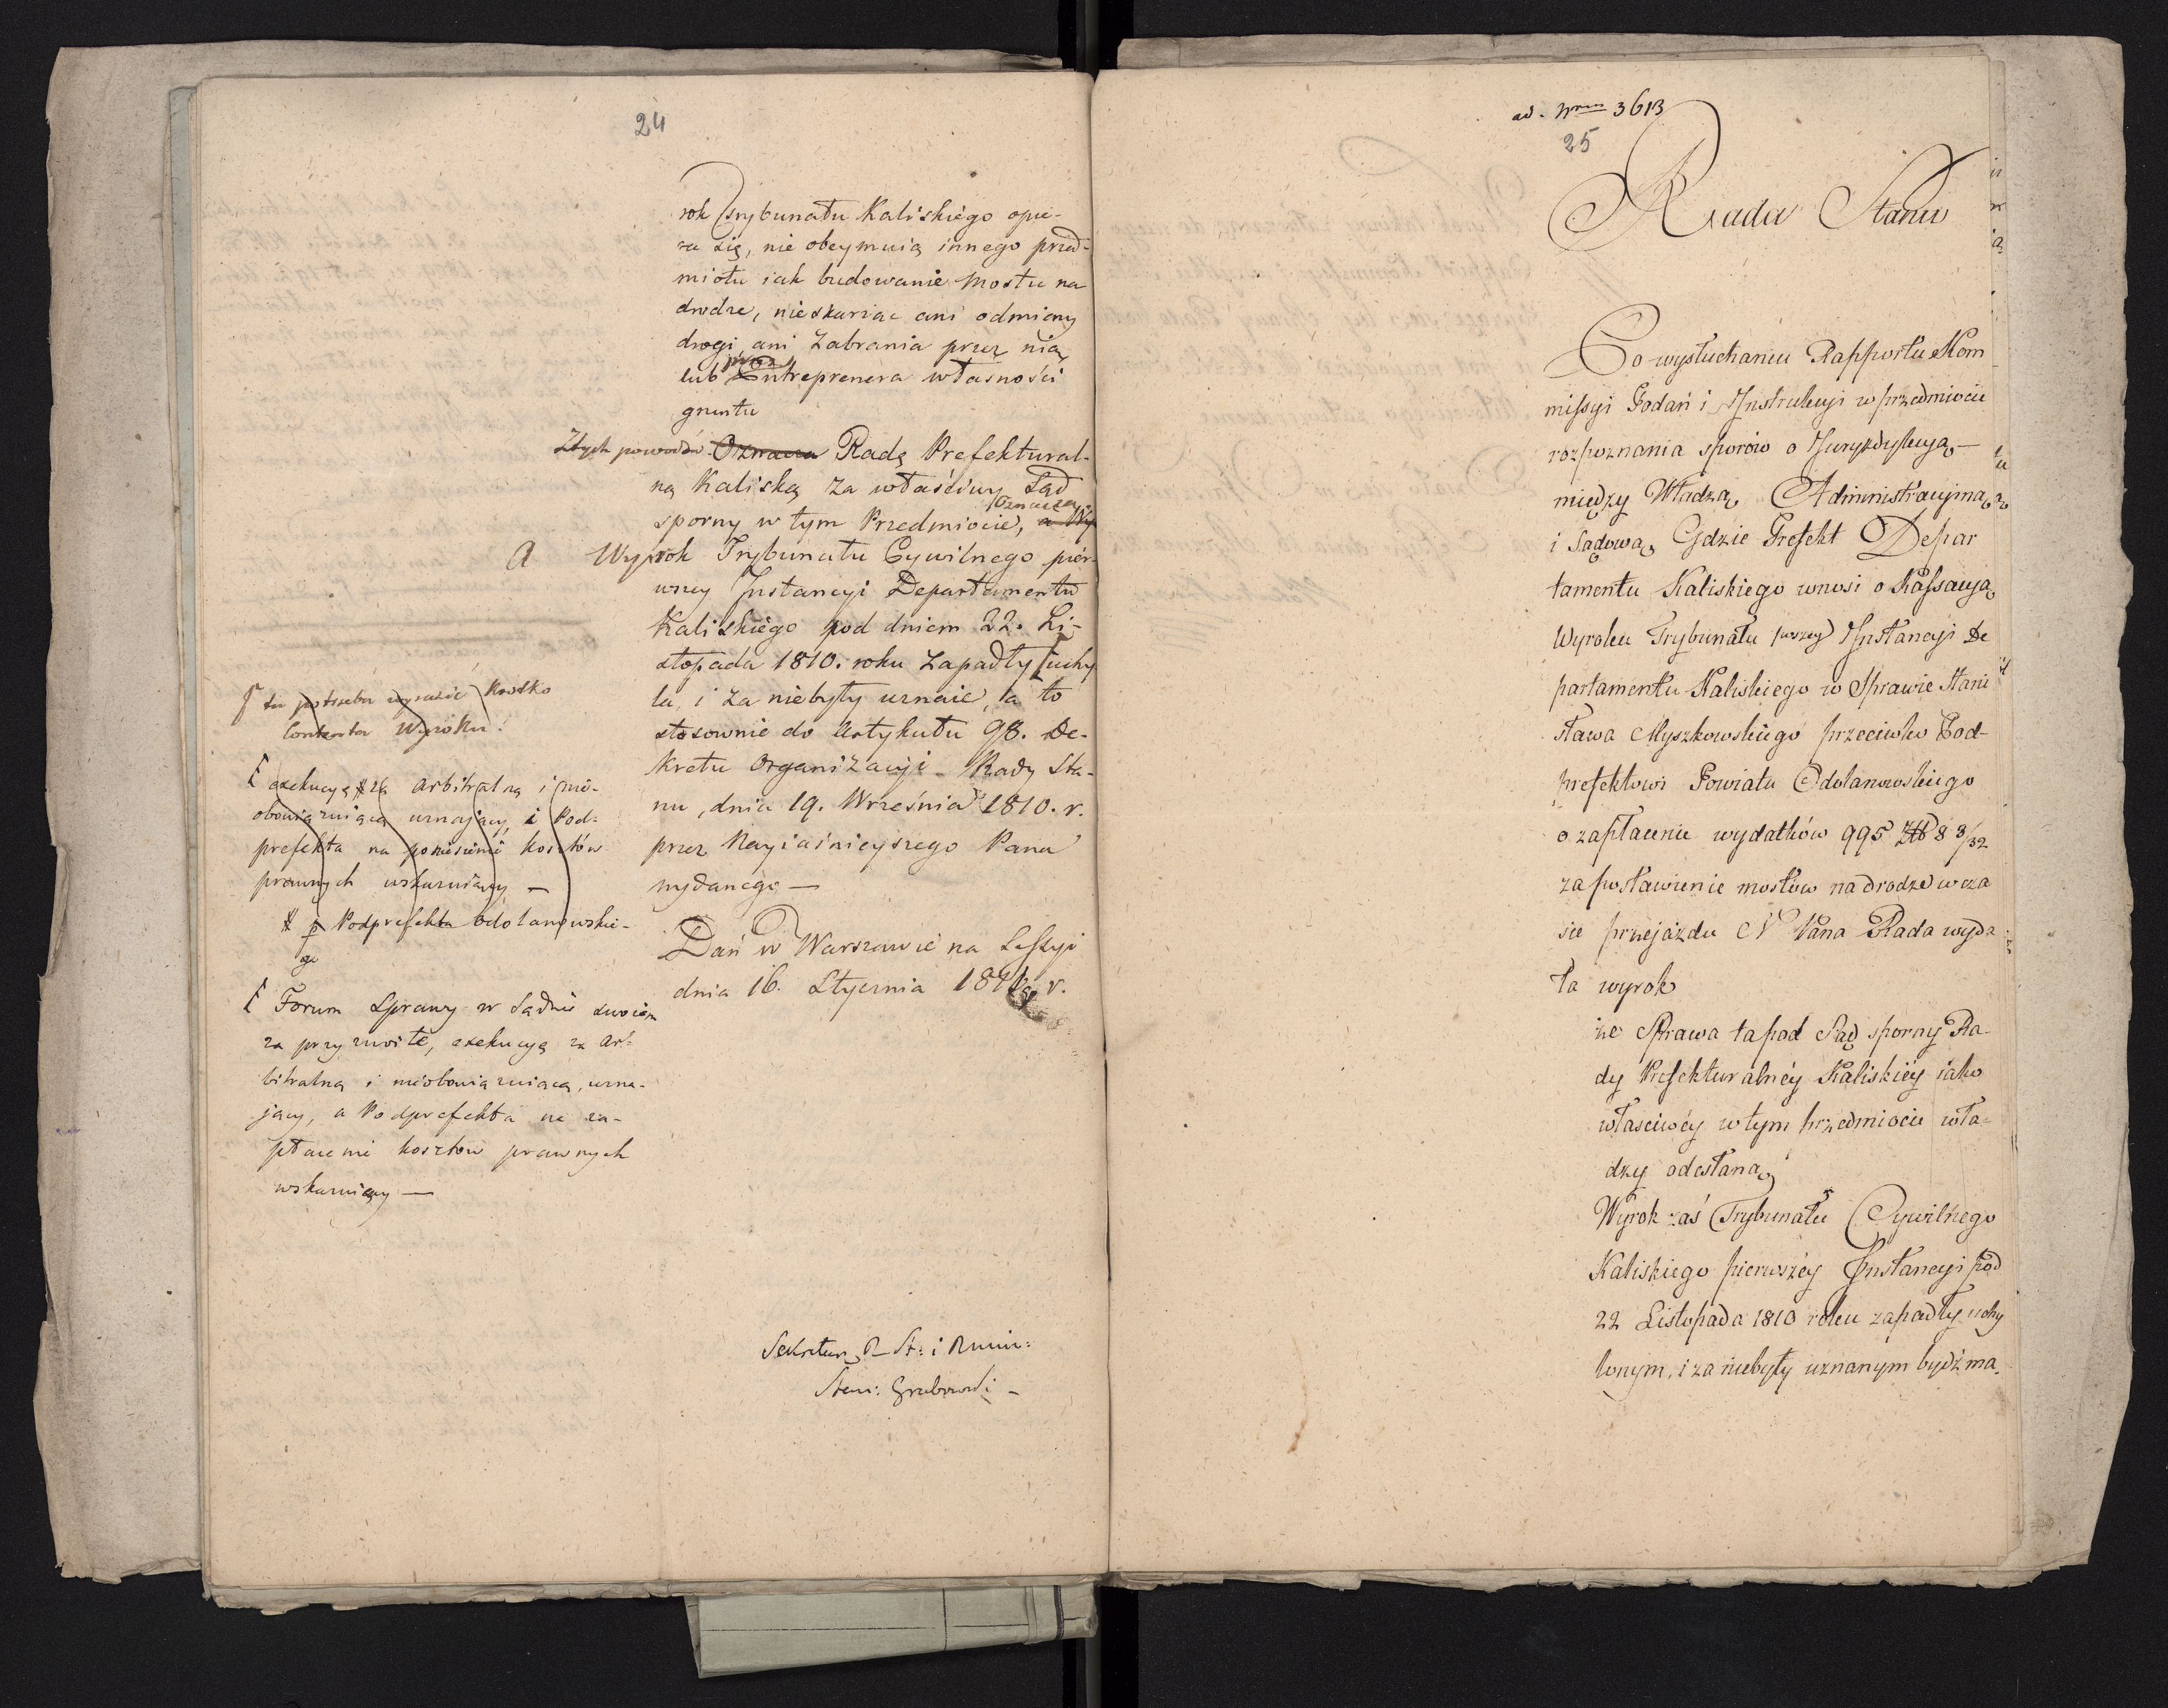 24
rok Trybunatu Kaliskiego opie-
ra się, nie obeymuią innego przed-
miotu iak budowanie Mostu na
drodze, nieskarżąc ani odmiany
drogi ani Zabrania przez nią
lub przez Entreprenera własności
gruntu
Ztych powodów Oznacza Radę Prefektural-
ną Kaliską za właściwy Sąd
sporny w tym Przedmiocie, Oznacza, a Wy
A Wyrok Trybunatu Cywilnego pier-
wszey Instancyi Departamentu
Kaliskiego pod dniem 22. Li-
stopada 1810. roku zapadły [uchy
la, i za niebyły uznaie, a to
stosownie do Artykułu 98. De-
kretu Organizacyi Rady Sta-
nu, dnia 19. Września 1810. r.
przez Nayiaśnieyszego Pana
wydanego —
Dań w Warszawie na Sessyi
dnia 16. Stycznia 1811 r.
tu potrzeba wyrazić krotko
Contenta Wyroku!
[ exekucyą za arbitralną i nie-
obowiązuiącą uznaiący, i Pod-
prefekta na poniesienie kosztów
prawnych wskazuiący —
Podprefekta Odolanowskie-
go
[ Forum Sprawy w Sądzie swoiem
za przyzwoite, exekucyą za ar-
bitralną i nieobowiązuiącą, uzna-
jący, a Podprefekta na za-
płacenie kosztów prawnych
wskazuiący —
Sekretarz R. St: i Minis:
Stan: Grabowski –
ad. Nrm 3613
25
Rada Stanu
Po wysłuchaniu Rapportu Kom
missyi Podań i Instrukcyi w przedmiocie
rozpoznania sporów o Juryzdykcyą —
między Władzą Administracyiną
i Sądową, Gdzie Prefekt Depar
tamentu Kaliskiego wnosi o Kassacyą
Wyroku Trybunatu 1wszey Instancyi De
partamentu Kaliskiego w Sprawie Stani
sława Myszkowskiego przeciwko Pod-
prefektowi Powiatu Odolanowskiego
o zapłacenie wydatków 995 Zł 8 8/32
za postawienie mostów na drodze w cza
sie przejazdu N Pana Rada wyda
ła wyrok
że Sprawa ta pod Sąd sporny Ra-
dy Prefekturalnéy Kaliskiéy iako
własciwéy w tym przedmiocie wła-
dzy odesłaną,
Wyrok zaś Trybunatu Cywilnego
Kaliskiego pierwszéy Instancyi pod
22 Listopada 1810 roku zapadły uchy
lonym, i za niebyły uznanym bydź ma.